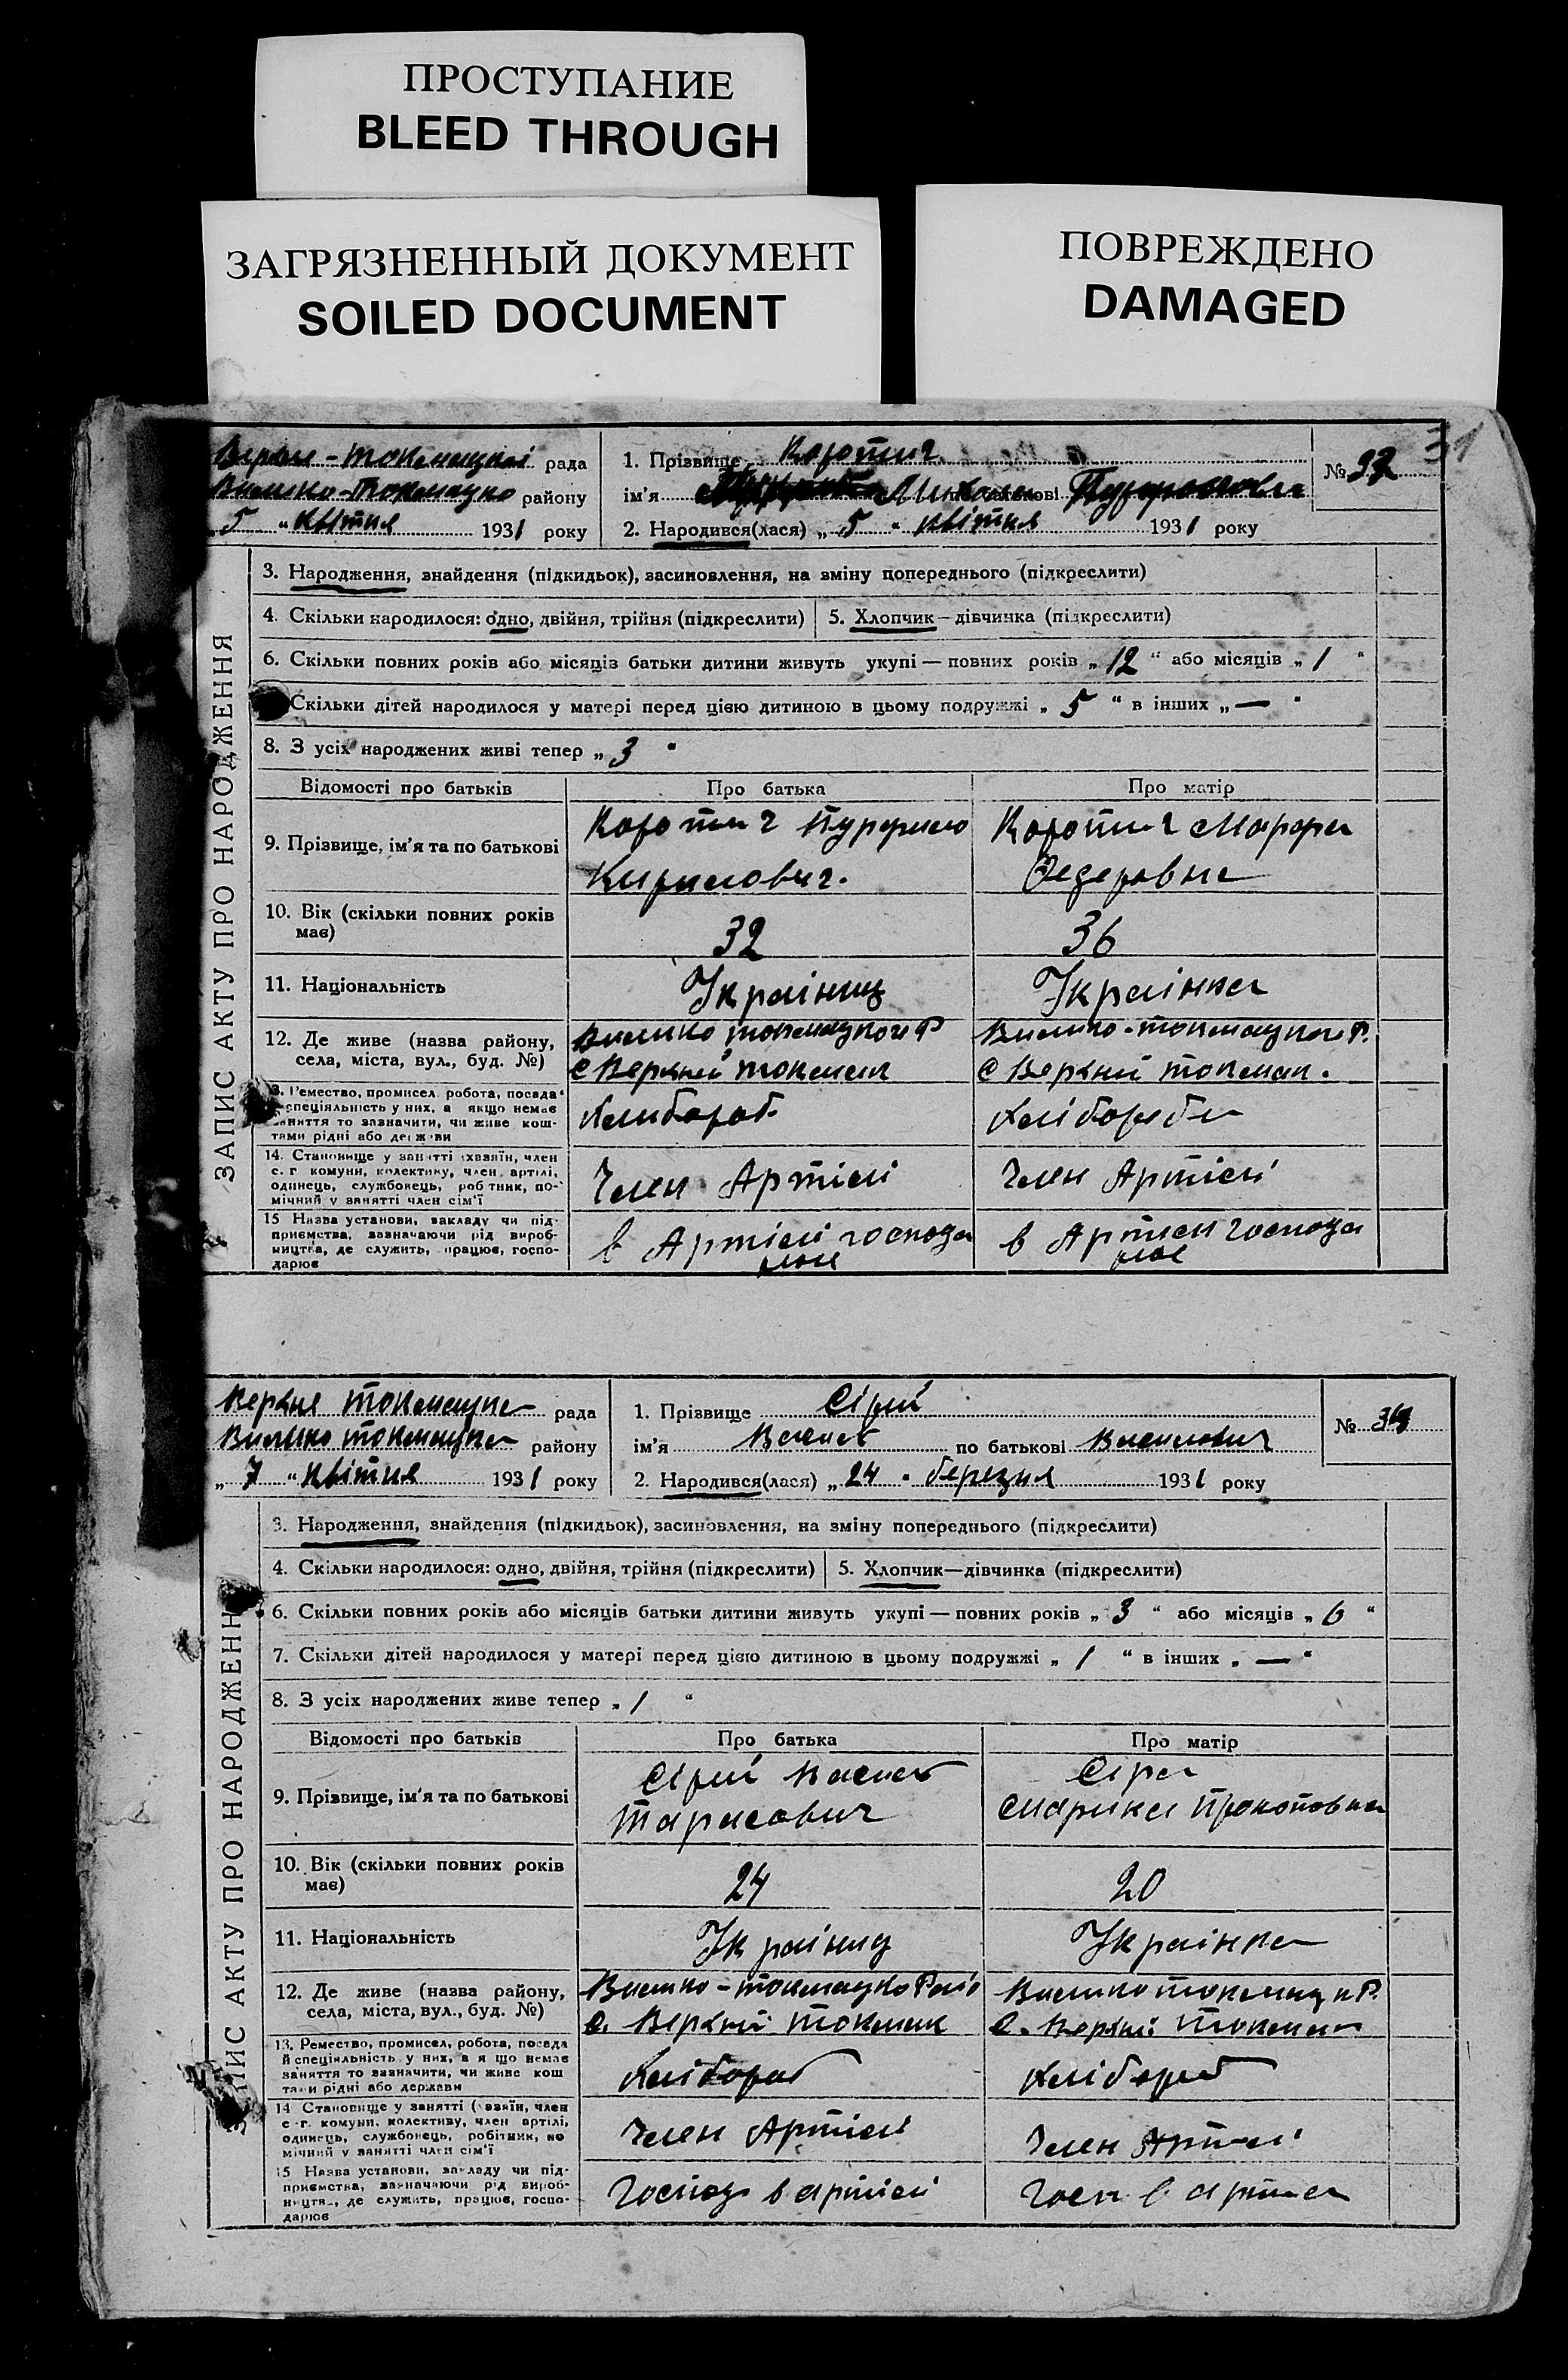 ПРОСТУПАНИЕ
BLEED THROUGH
ЗАГРЯЗНЕННЫЙ ДОКУМЕНТ
SOILED DOCUMENT
ПОВРЕЖДЕНО
DAMAGED
31
рада
району
5 " квітня 1931 року
1. Прізвище Коротич
ім'я Микола по батькові
2. Народився(лася) „ 5 " квітня 1931 року
№ 32
ЗАПИС АКТУ ПРО НАРОДЖЕННЯ
3. Народження, знайдення (підкидьок), засиновлення, на зміну попереднього (підкреслити)
4. Скільки народилося: одно, двійня, трійня (підкреслити)
5. Хлопчик — дівчинка (підкреслити)
6. Скільки повних років або місяців батьки дитини живуть укупі — повних років „ 12 " або місяців „ 1 "
Скільки дітей народилося у матері перед цією дитиною в цьому подружжі „ 5 " в інших „ — "
8. З усіх народжених живі тепер „ 3 "
Відомості про батьків Про батька Про матір
9. Прізвище, ім'я та по батькові
Коротич
Кирилович.
Коротич Марфа
Федеровна
10. Вік (скільки повних років
має)
32 36
11. Національність Україниц Українка
12. Де живе (назва району,
села, міста, вул., буд. №)
с Верхний Токмак
с Верхний Токмак.
13. Ремество, промисел, робота, посада
й спеціяльність у них, а якщо немає
заняття то зазначити, чи живе кош-
тами рідні або держави
Хлибороб
Хлібороб
14. Становище у занятті (хазяїн, член
с. г. комуни, колективу, член артілі,
одинець, службовець, робітник, по-
мічний у занятті член сім'ї
Член Артілі Член Артілі
15 Назва установи, закладу чи під-
приємства, зазначаючи рід вироб-
ництва, де служить, працює, госпо-
дарює
в Артілі господа
рює
в Артілі господа
рює
Верхне Токмацка рада
Велико Токмацка району
„ 7 " квітня 1931 року
1. Прізвище Сірий
ім'я Василь по батькові Васильович
2. Народився(лася) „ 24 " березня 1931 року
№ 34
ЗАПИС АКТУ ПРО НАРОДЖЕННЯ
3. Народження, знайдення (підкидьок), засиновлення, на зміну попереднього (підкреслити)
4. Скільки народилося: одно, двійня, трійня (підкреслити)
5. Хлопчик—дівчинка (підкреслити)
6. Скільки повних років або місяців батьки дитини живуть укупі — повних років „ 3 " або місяців „ 6 "
7. Скільки дітей народилося у матері перед цією дитиною в цьому подружжі „ 1 " в інших „ — "
8. З усіх народжених живе тепер „ 1 "
Відомості про батьків Про батька Про матір
9. Прізвище, ім'я та по батькові
Сірий Василь
Тарасович
Сіра
Марика Прокоповна
10. Вік (скільки повних років
має)
24 20
11. Національність Україниц Українка
12. Де живе (назва району,
села, міста, вул., буд. №)
с. Верхний Токмак
с. Верхній Токмак
13. Ремество, промисел, робота, посада
й спеціяльність у них, а якщо немає
заняття то зазначити, чи живе кош
тами рідні або держави
Хлібороб Хлібороб
14 Становище у занятті (хазяїн, член
с.-г. комуни, колективу, член артілі,
одинець, службовець, робітник, по
мічний у занятті член сім'ї
Член Артілі Член Артілі
15 Назва установи, закладу чи під-
приємства, зазначаючи рід вироб-
ництва, де служить, працює, госпо-
дарює
Господ в артілі Госп в артілі